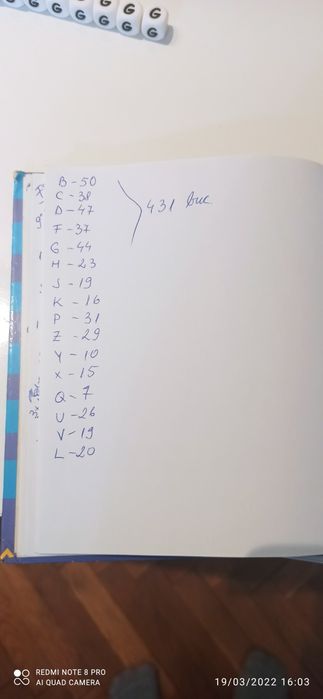 G G G G G
G G G G
B-50
C-38
D-47
F-37
G-44
H-23
J-19
K-16
P-31
Z-29
Y-10
X-15
Q-7
U-26
V-19
L-20
431 buc
REDMI NOTE 8 PRO
AI QUAD CAMERA
19/03/2022 16:03